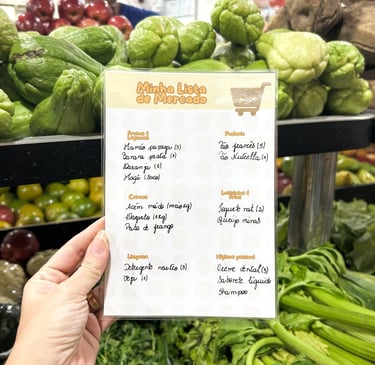 Minha Lista
de Mercado
Frutas &
Legumes
Mamão papaya (3)
Banana prata (1)
Laranja (6)
Maçã (saco)
Padaria
Pão francês (5)
Pão Nutella (1)
Carnes
Acém moído (meio kg)
Peito de frango
Laticínios &
Frios
Iogurte nat. (2)
Queijo minas
Limpeza
Detergente neutro (3)
Veja (1)
Higiene pessoal
Creme dental (3)
Sabonete líquido
Shampoo